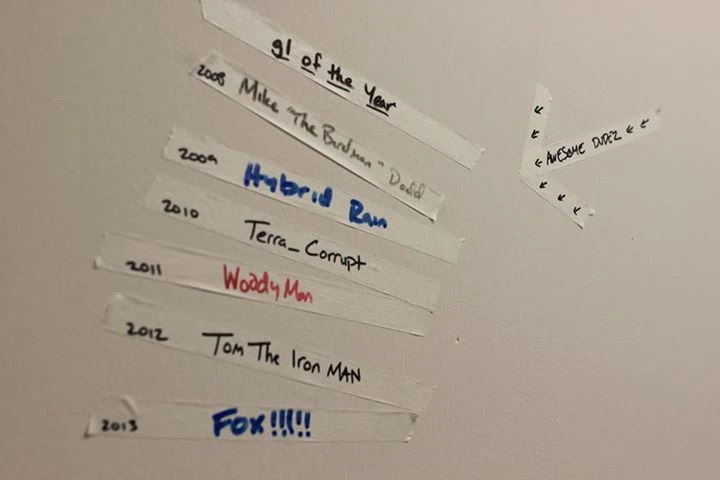 gl of the Year
2008 Mike "The Birdman" Dodd
2009 Hybrid Rain
2010 Terra_Corrupt
2011 WoodyMan
2012 Tom The Iron MAN
2013 Fox!!!!!
AWESOME DUDEZ